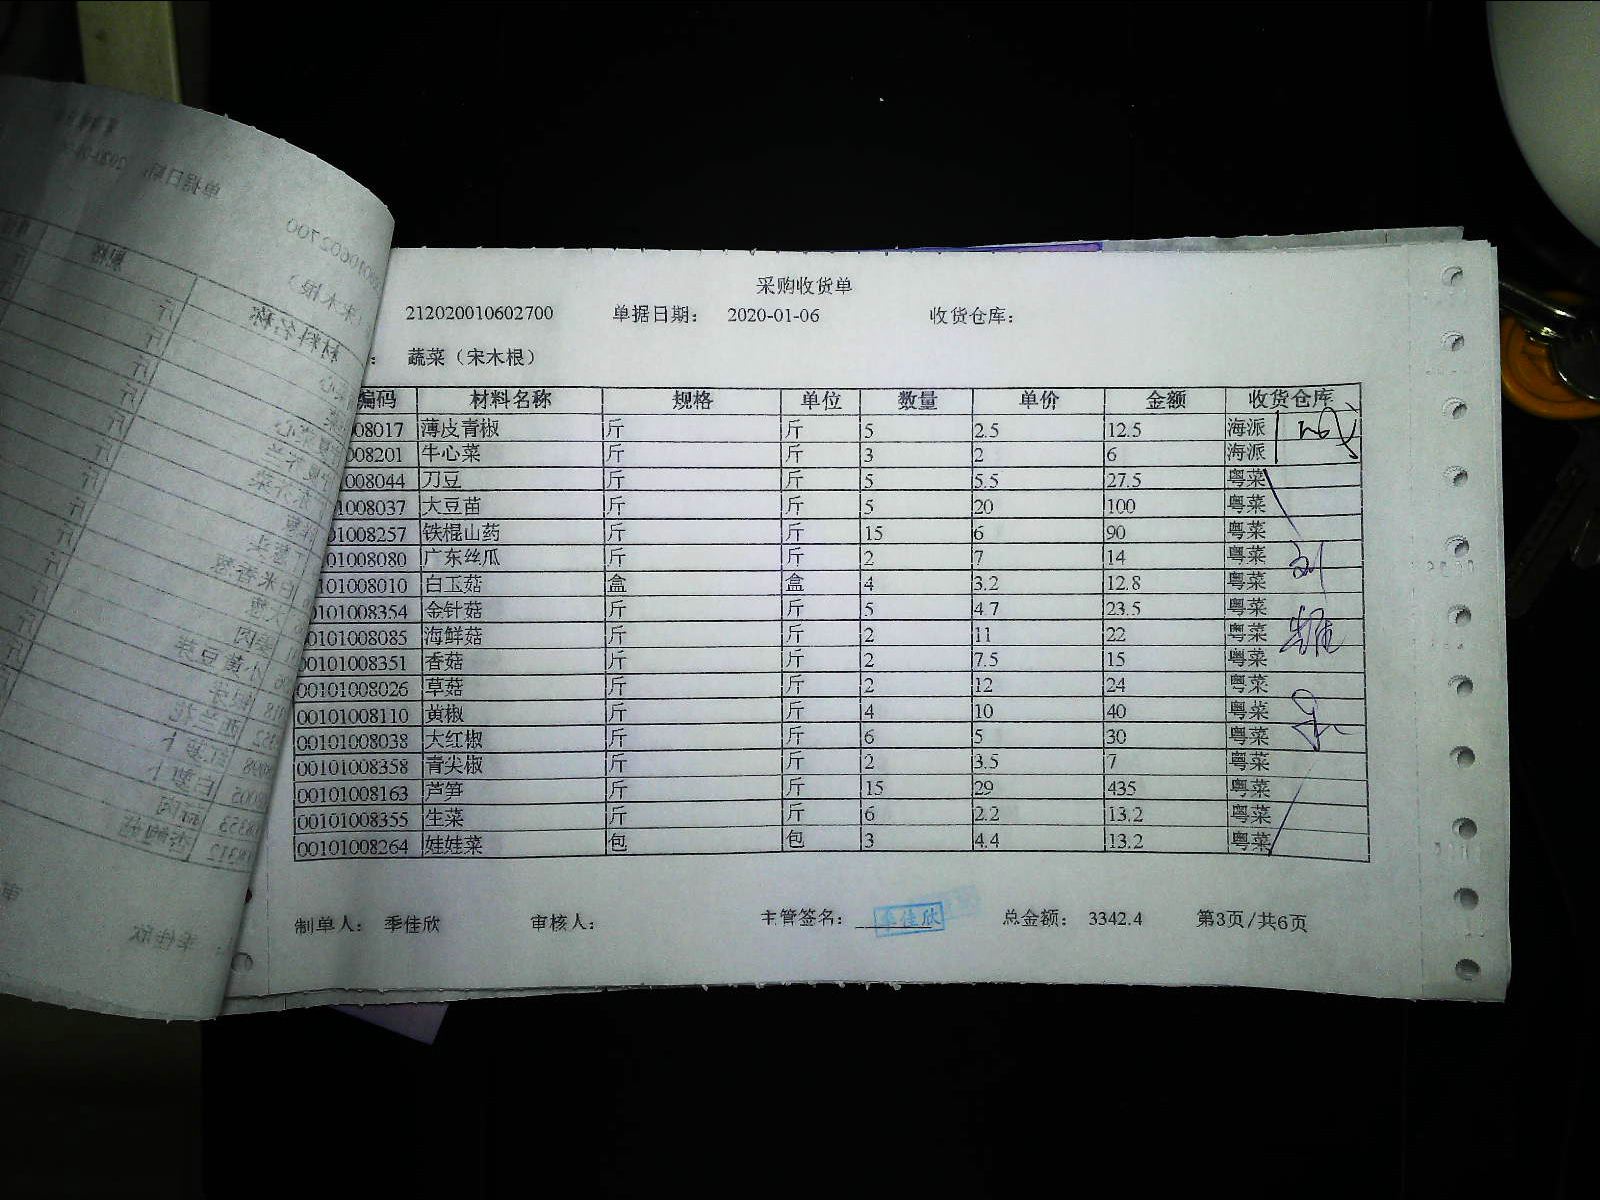 采购收货单
212020010602700 单据日期： 2020-01-06 收货仓库：
： 蔬菜（宋木根）
编码 材料名称 规格 单位 数量 单价 金额 收货仓库
008017 薄皮青椒 斤 斤 5 2.5 12.5 海派
008201 牛心菜 斤 斤 3 2 6 海派
1008044 刀豆 斤 斤 5 5.5 27.5 粤菜
01008037 大豆苗 斤 斤 5 20 100 粤菜
01008257 铁棍山药 斤 斤 15 6 90 粤菜
101008080 广东丝瓜 斤 斤 2 7 14 粤菜
0101008010 白玉菇 盒 盒 4 3.2 12.8 粤菜
0101008354 金针菇 斤 斤 5 4.7 23.5 粤菜
00101008085 海鲜菇 斤 斤 2 11 22 粤菜
00101008351 香菇 斤 斤 2 7.5 15 粤菜
00101008026 草菇 斤 斤 2 12 24 粤菜
00101008110 黄椒 斤 斤 4 10 40 粤菜
00101008038 大红椒 斤 斤 6 5 30 粤菜
00101008358 青尖椒 斤 斤 2 3.5 7 粤菜
00101008163 芦笋 斤 斤 15 29 435 粤菜
00101008355 生菜 斤 斤 6 2.2 13.2 粤菜
00101008264 娃娃菜 包 包 3 4.4 13.2 粤菜
制单人： 季佳欣 审核人： 主管签名： 季佳欣 总金额： 3342.4 第3页/共6页